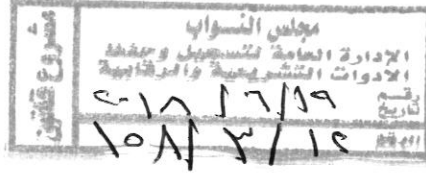 مشروع قانون
مجلس النواب
الإدارة العامة لتسجيل وحفظ
الأدوات التشريعية والرقابية
رقم
تاريخ
٢٠١٨/٦/١٩
الرقم